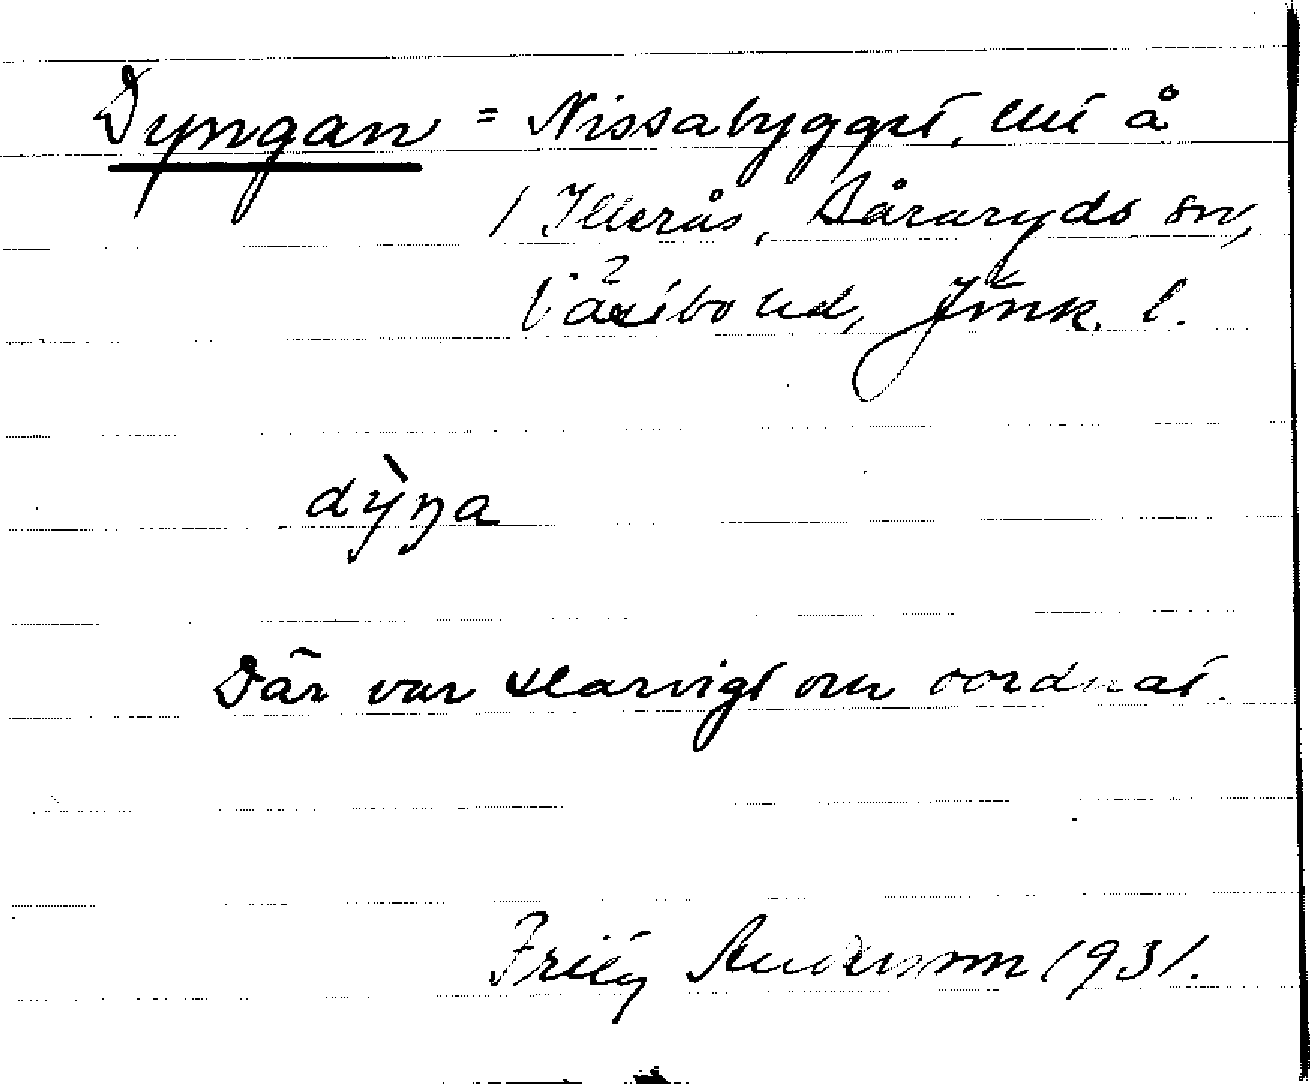 Dyngan = Nissabygget, ett å
/ Illerås, Båraryds sn,
Västbo hd, Jönk. l.
dỳŋa
Där var slarvigt om oordnat.
Fritz Andersson 1931.